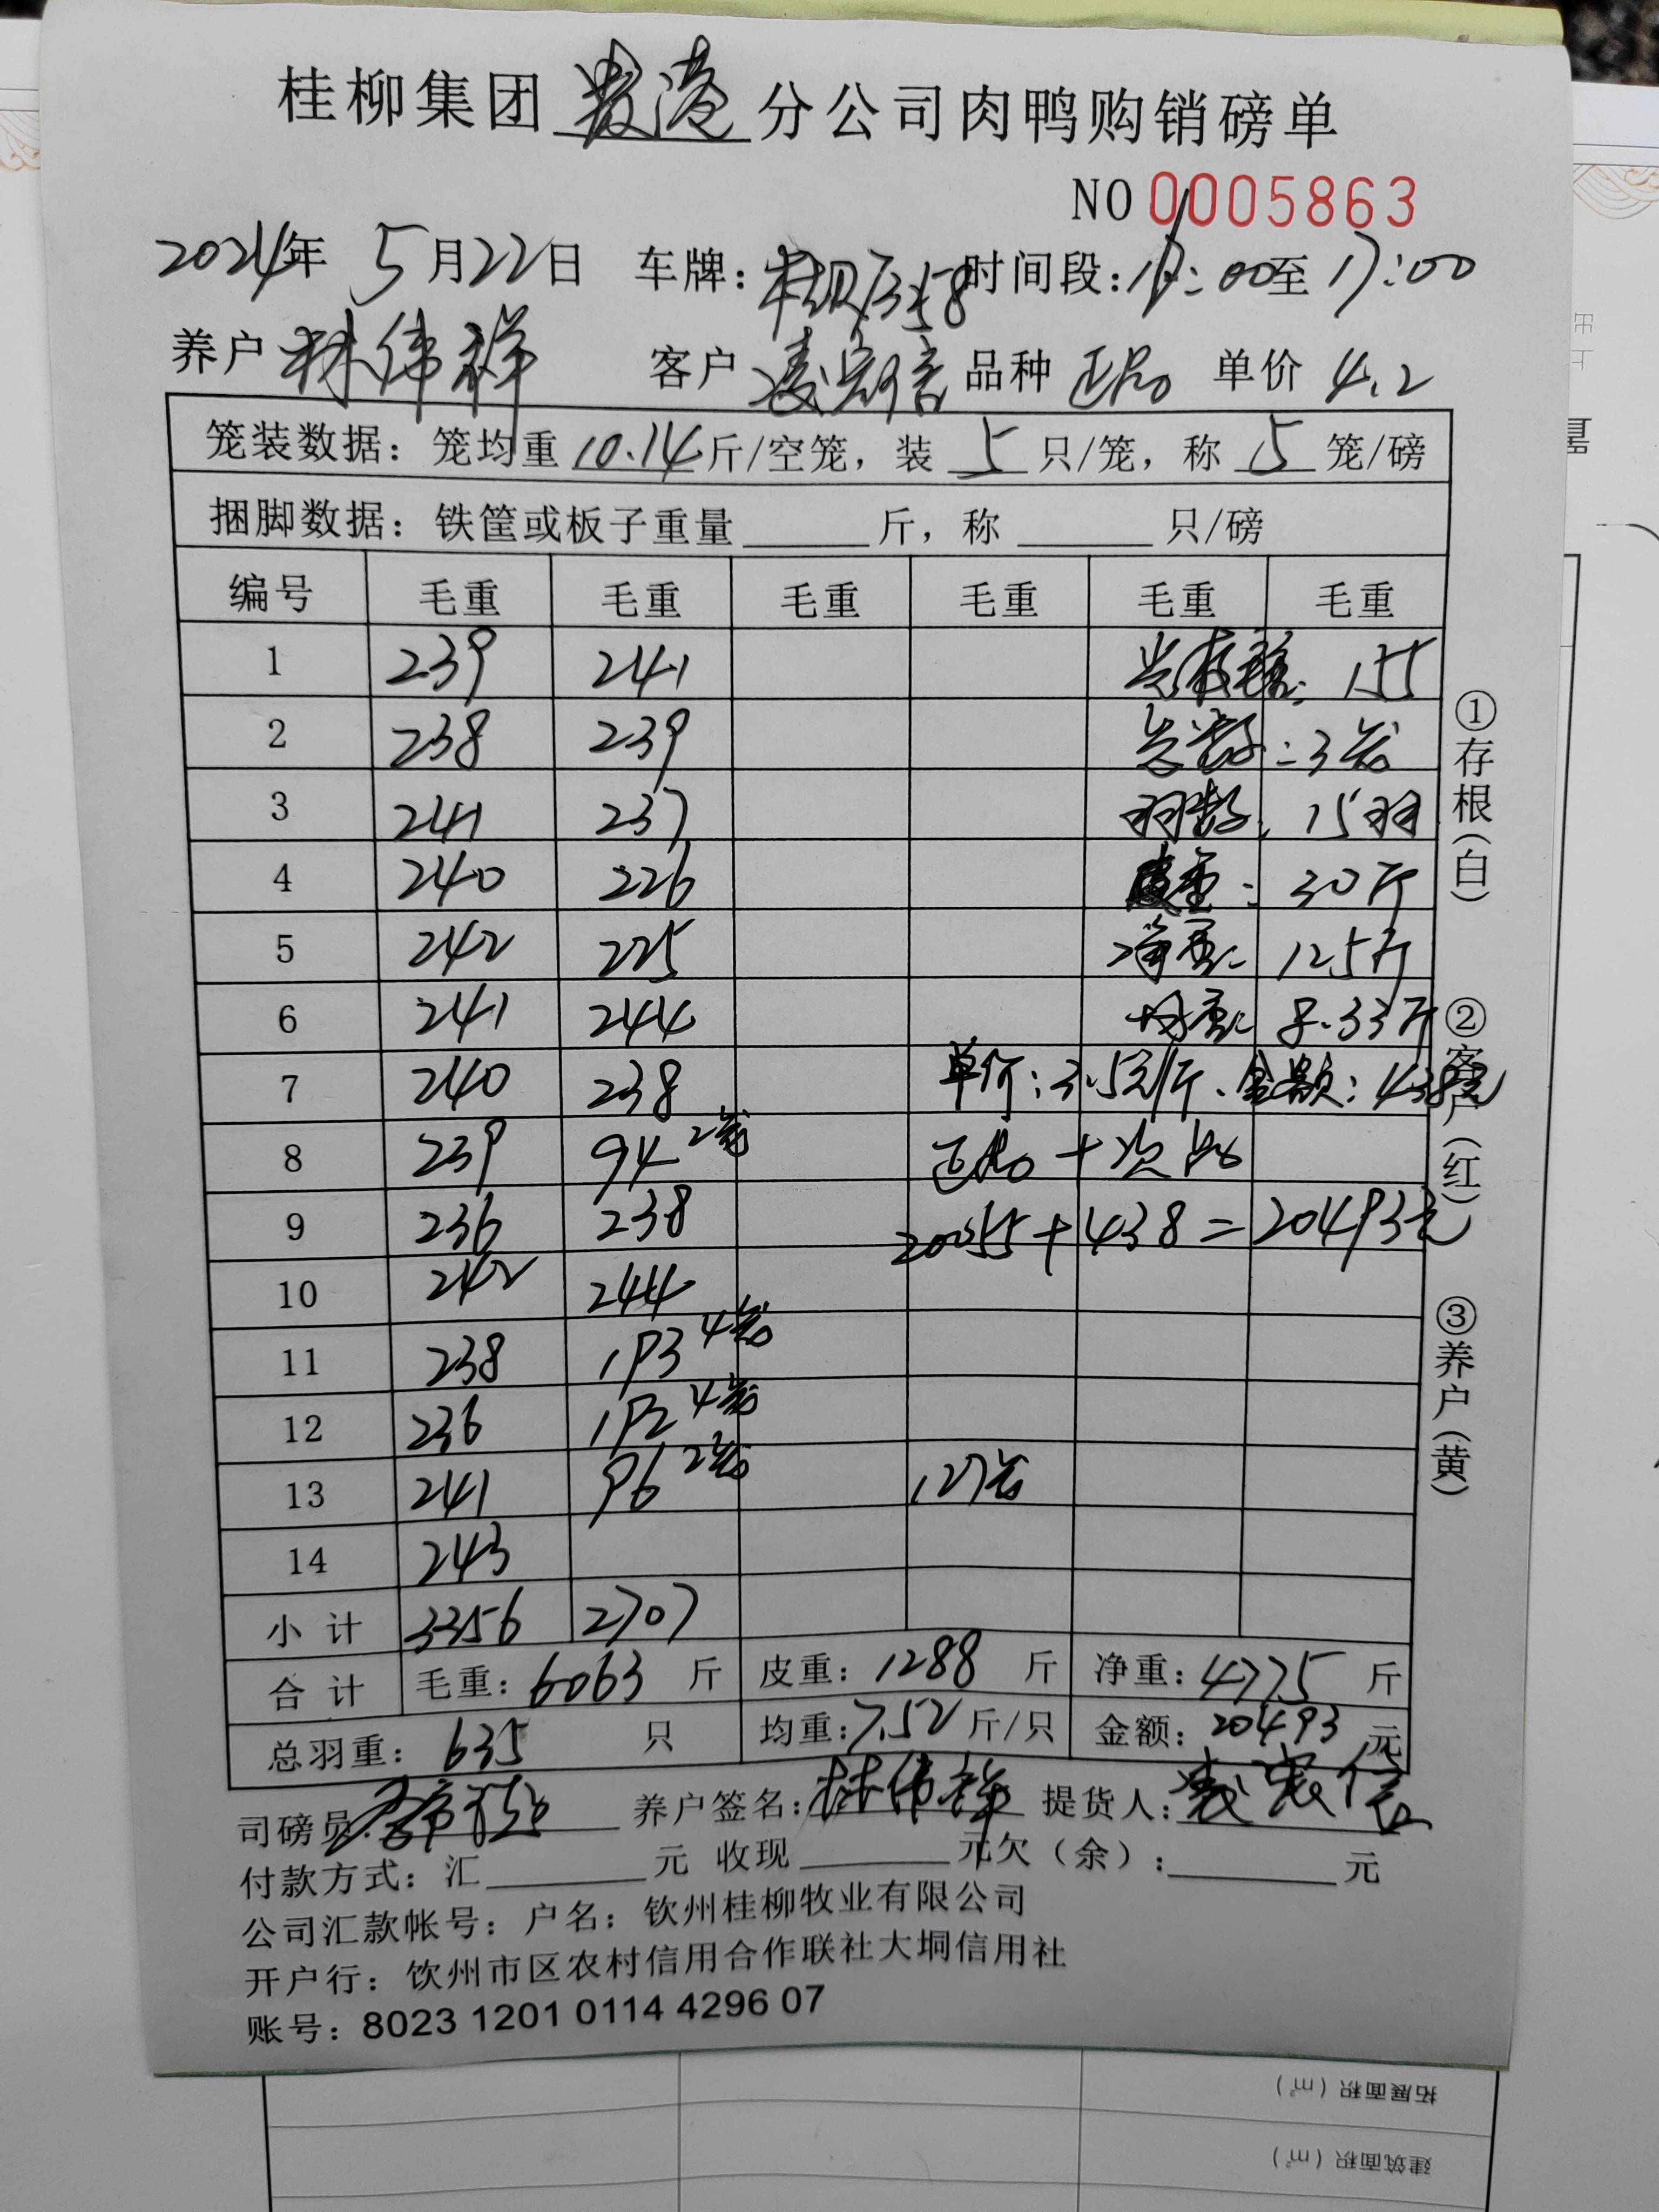 桂柳集团 贵港 分公司肉鸭购销磅单
NO 0005863
2024年 5月22日 车牌： 时间段：16:00至17:00
养户 林伟祥 客户 品种 正品 单价 4.2
笼装数据：笼均重 10.14 斤/空笼，装 5 只/笼，称 5 笼/磅
捆脚数据：铁筐或板子重量 斤，称 只/磅
编号 毛重 毛重 毛重 毛重 毛重 毛重
1 239 241 155
2 238 239 总笼数：3笼
3 241 237 羽数：15羽
4 240 226 皮重：30斤
5 242 225 净重：125斤
6 241 244 均重：8.33斤
7 240 238 单价：3.5元/斤、金额：438元
8 239 94 2笼 正品+次品
9 236 238 20055+438=20493元
10 242 244
11 238 193 4笼
12 236 192 4笼
13 241 96 2笼 127笼
14 243
小计 3356 2707
合计 毛重：6063 斤 皮重：1288 斤 净重：4775 斤
总羽重：635 只 均重：7.52 斤/只 金额：20493 元
司磅员： 养户签名：林伟祥 提货人：
付款方式：汇 元 收现 元欠（余）： 元
公司汇款帐号：户名：钦州桂柳牧业有限公司
开户行：钦州市区农村信用合作联社大垌信用社
账号：8023 1201 0114 4296 07
①存根（白）
②客户（红）
③养户（黄）
拓展面积（㎡）
建筑面积（㎡）